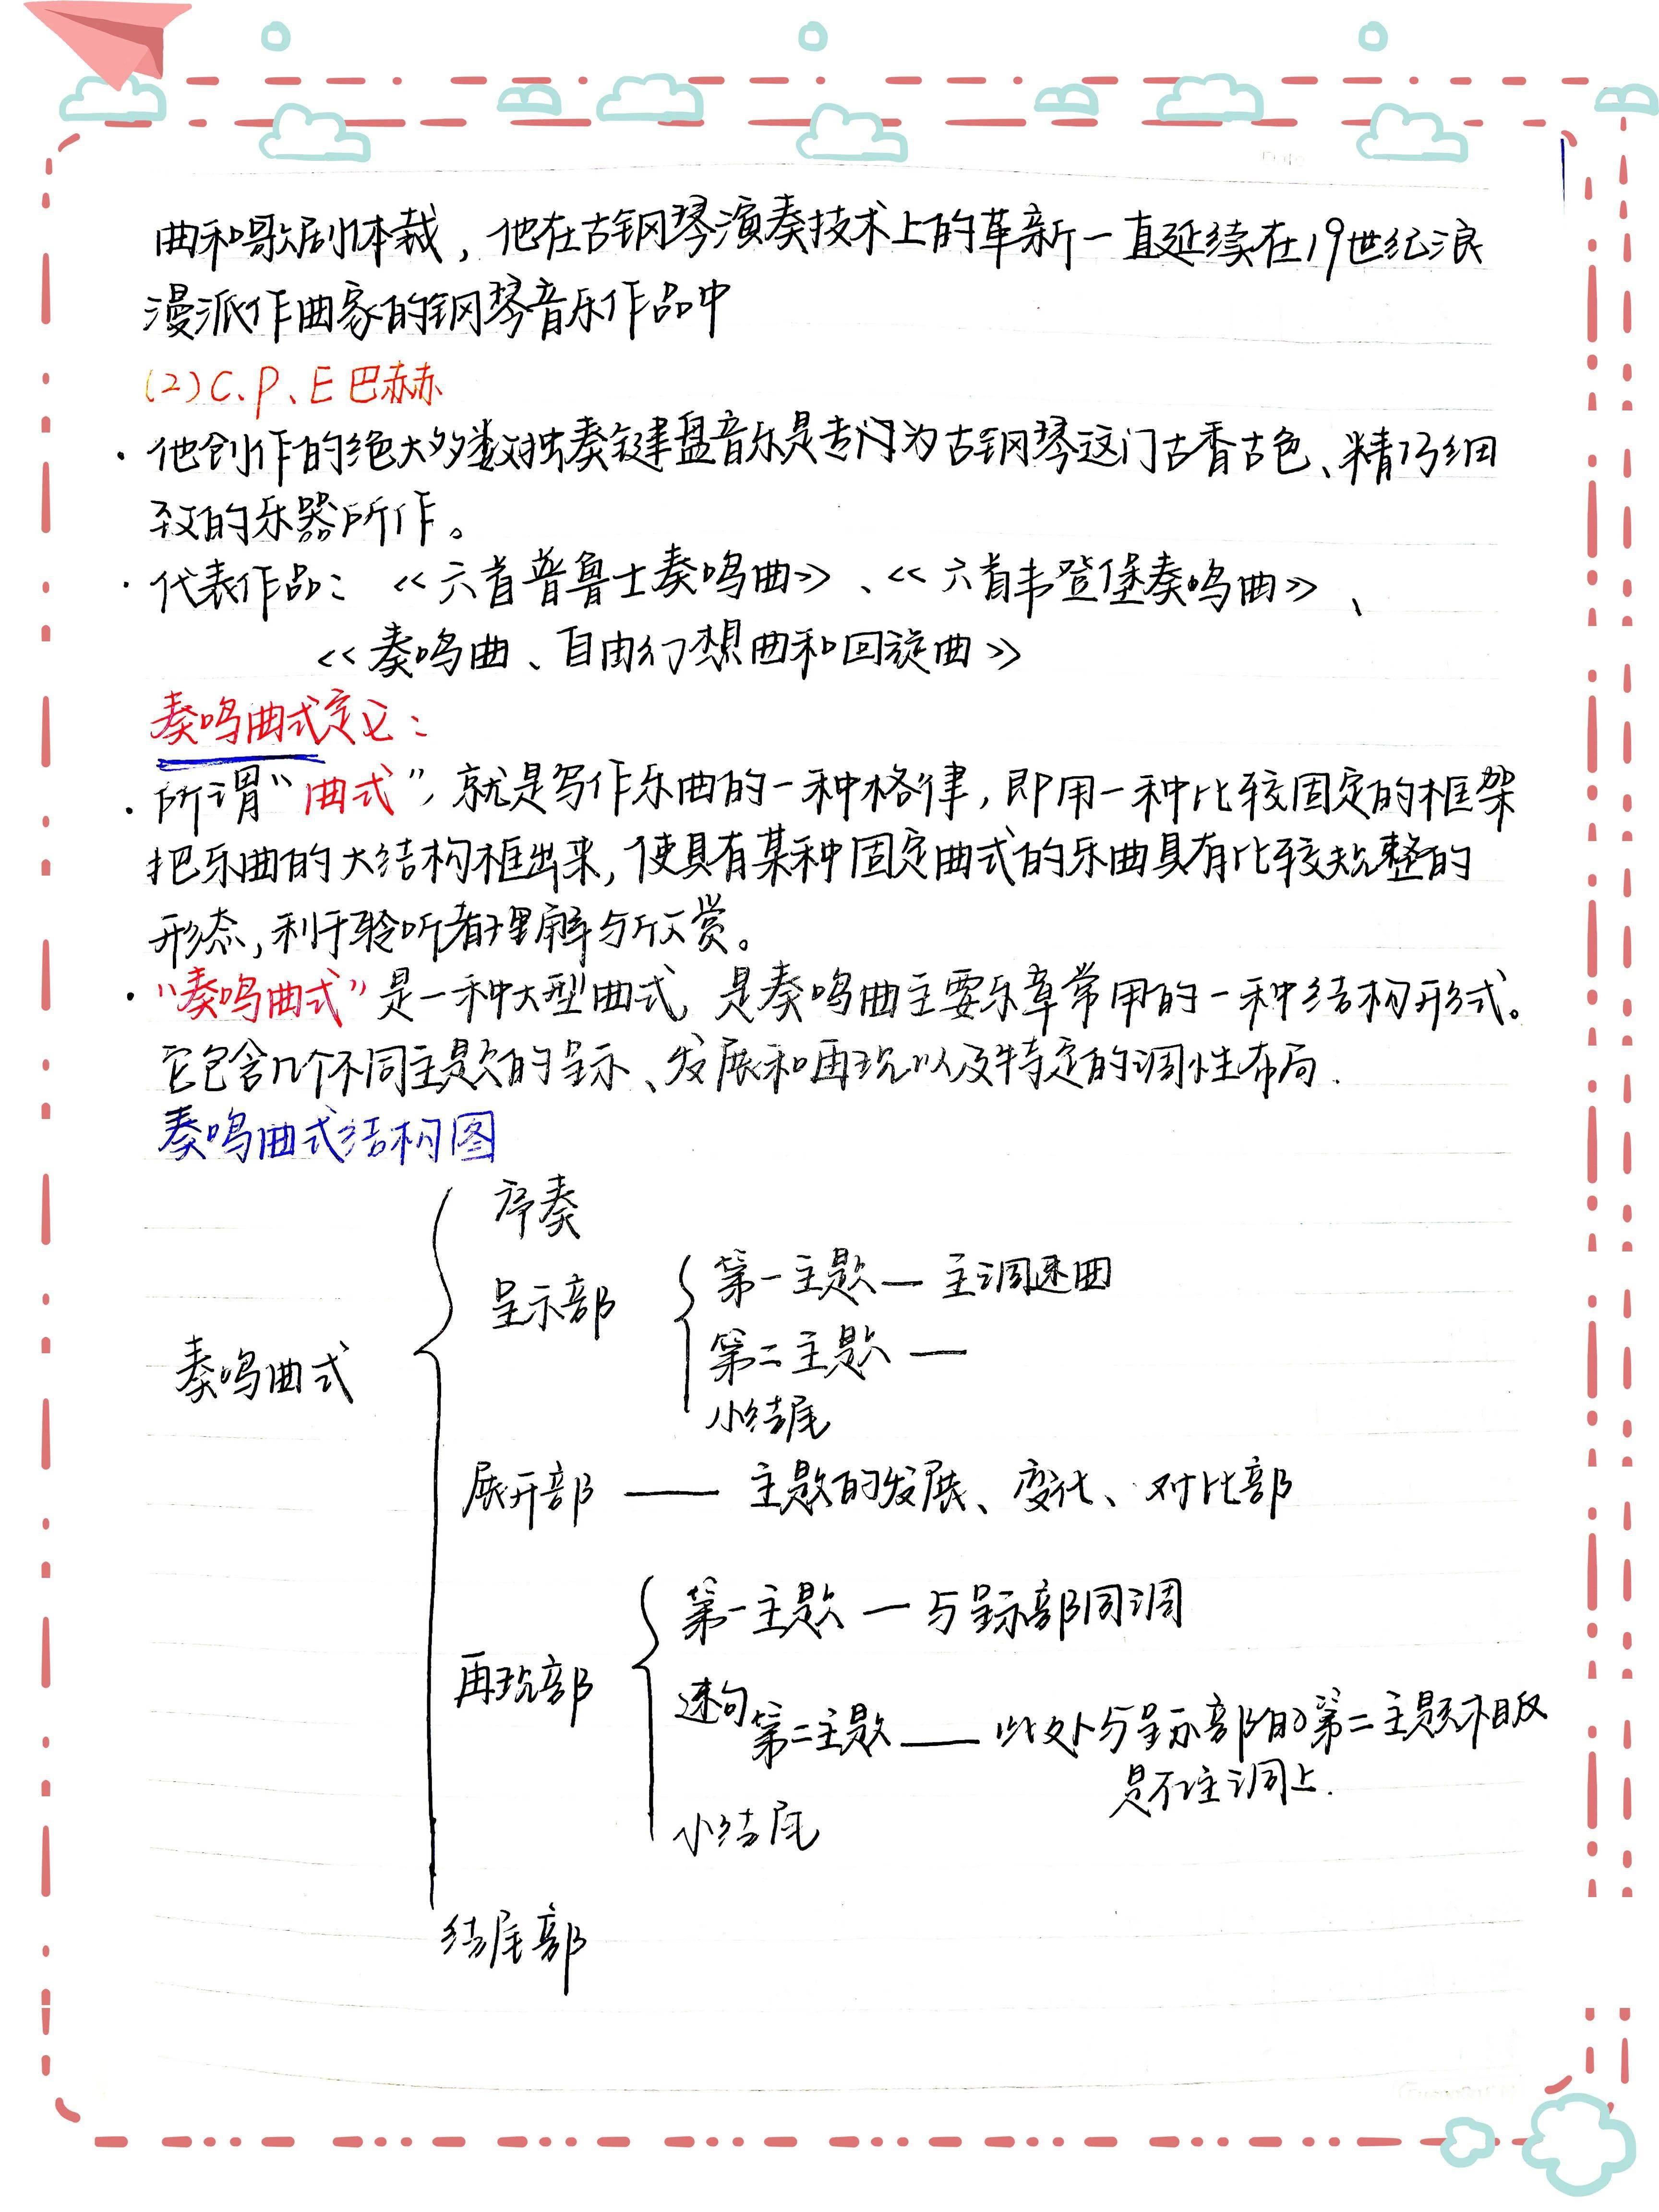 曲和歌剧体裁，他在古钢琴演奏技术上的革新一直延续在19世纪浪
漫派作曲家的钢琴音乐作品中
(2)C、P、E巴赫
· 他创作的绝大多数独奏键盘音乐是专门为古钢琴这门古香古色、精巧细
致的乐器所作。
· 代表作品：《六首普鲁士奏鸣曲》、《六首韦登堡奏鸣曲》、
《奏鸣曲、自由幻想曲和回旋曲》
奏鸣曲式定义：
· 所谓“曲式”，就是写作乐曲的一种格律，即用一种比较固定的框架
把乐曲的大结构框出来，使具有某种固定曲式的乐曲具有比较规整的
形态，利于聆听者理解与欣赏。
· “奏鸣曲式”是一种大型曲式，是奏鸣曲主要乐章常用的一种结构形式。
它包含几个不同主题的呈示、发展和再现以及特定的调性布局.
奏鸣曲式结构图
序奏
呈示部
第一主题—主调
第二主题—
小结尾
奏鸣曲式
展开部——主题的发展、变化、对比部
再现部
第一主题—与呈示部同调
连句
第二主题——此处与呈示部的第二主题相反
是在主调上.
小结尾
结尾部